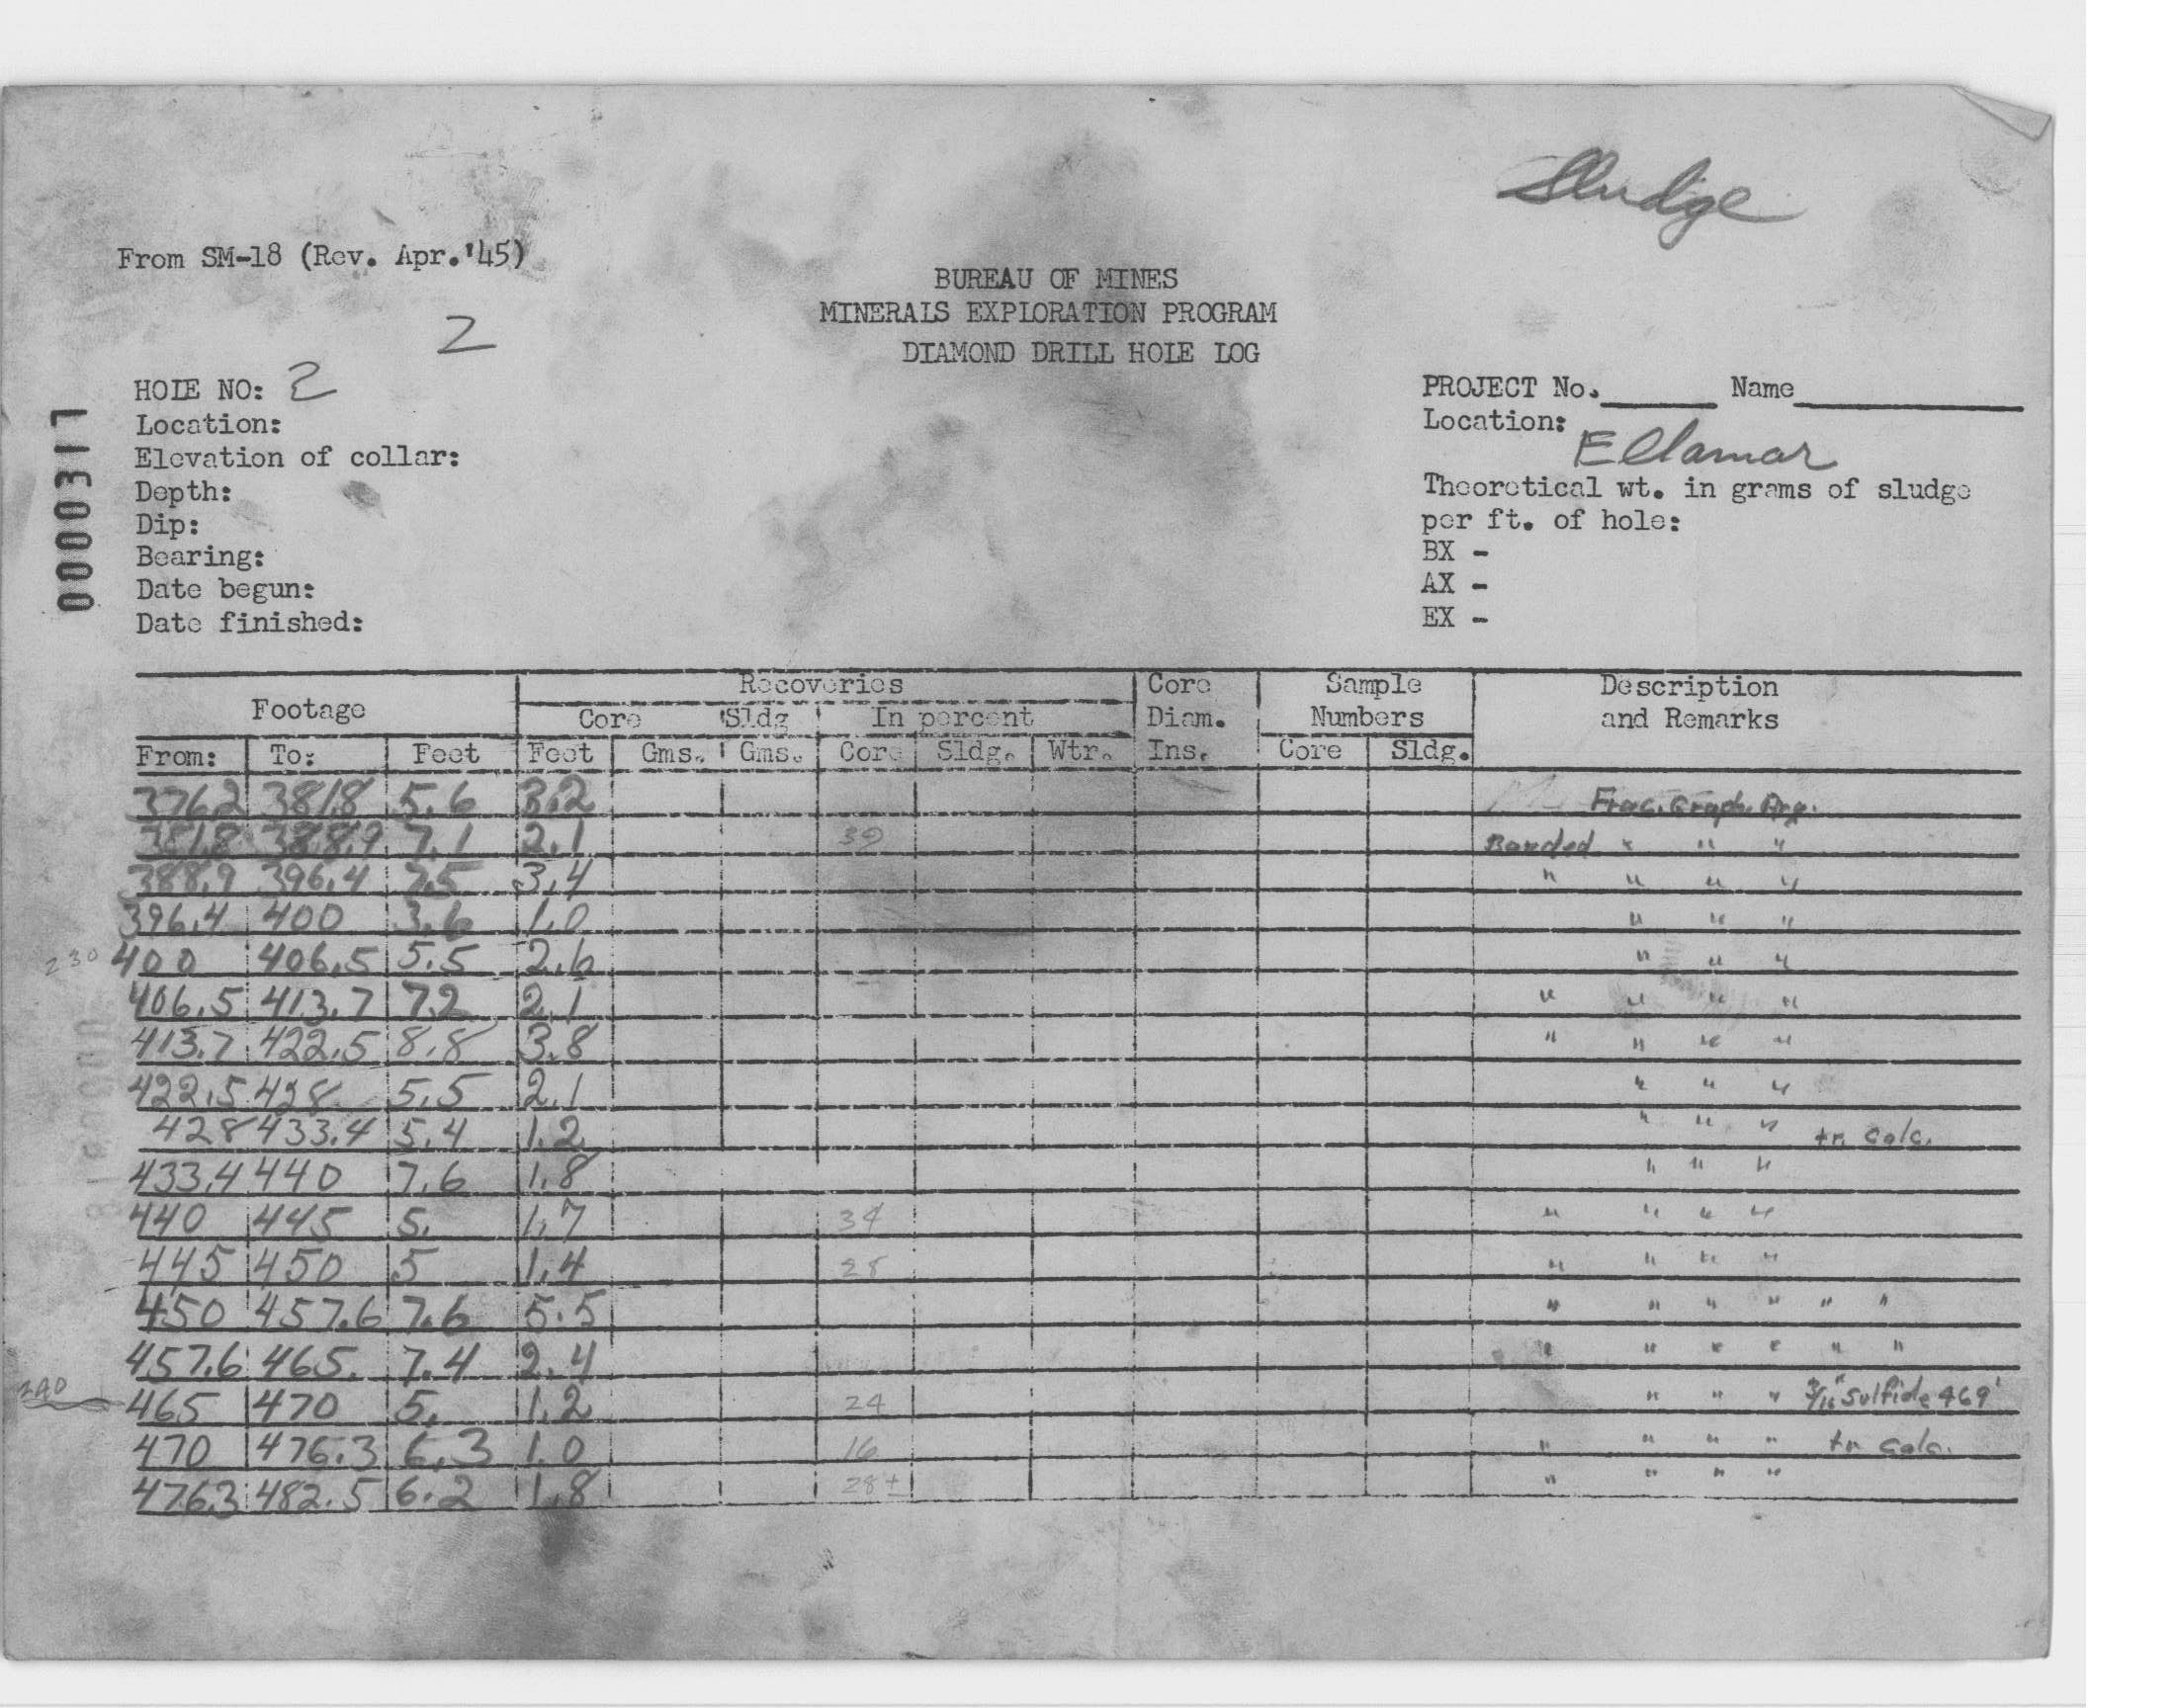 Sludge
From SM-18 (Rev. Apr.'45)
BUREAU OF MINES
MINERALS EXPLORATION PROGRAM
2
DIAMOND DRILL HOLE LOG
HOLE NO: 2
PROJECT No. Name
Location:
Location: Ellamar
Elevation of collar:
Depth:
Theoretical wt. in grams of sludge
Dip:
per ft. of hole:
Bearing:
BX -
Date begun:
AX -
Date finished:
EX -
000317
Footage Recoveries Core Diam. Ins. Sample Numbers Description and Remarks
Core Sldg In percent
From: To: Feet Feet Gms. Gms. Core Sldg. Wtr. Core Sldg.
376.2 381.8 5.6 3.2 Frac. Graph. Arg.
381.8 388.9 7.1 2.1 Banded " " "
388.9 396.4 7.5 3.4 " " " "
396.4 400 3.6 1.0 " " "
230 400 406.5 5.5 2.6 " " "
406.5 413.7 7.2 2.1 " " " "
413.7 422.5 8.8 3.8 " " " "
422.5 428 5.5 2.1 " " "
428 433.4 5.4 1.2 " " " tr. calc.
433.4 440 7.6 1.8 " " "
440 445 5. 1.7 34 " " " "
445 450 5 1.4 28 " " " "
450 457.6 7.6 5.5 " " " " " "
457.6 465. 7.4 2.4 " " " " " "
240 465 470 5. 1.2 24 " " " 3/16" Sulfide 469'
470 476.3 6.3 1.0 16 " " " " tr. calc.
476.3 482.5 6.2 1.8 28± " " " "